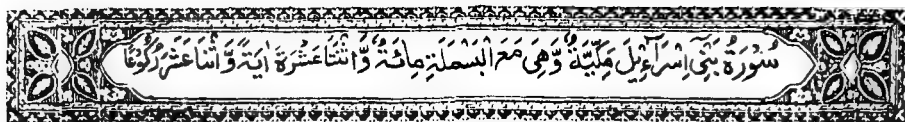 سُوْرَةُ بَنِیْۤ اِسْرَآءِیْلَ مَکِّیَّةٌ وَّهِیَ مَعَ الْبَسْمَلَةِ مِائَةٌ وَّاثْنَتَا عَشْرَةَ اٰیَةً وَّاثْنَا عَشَرَ رُکُوْعًا